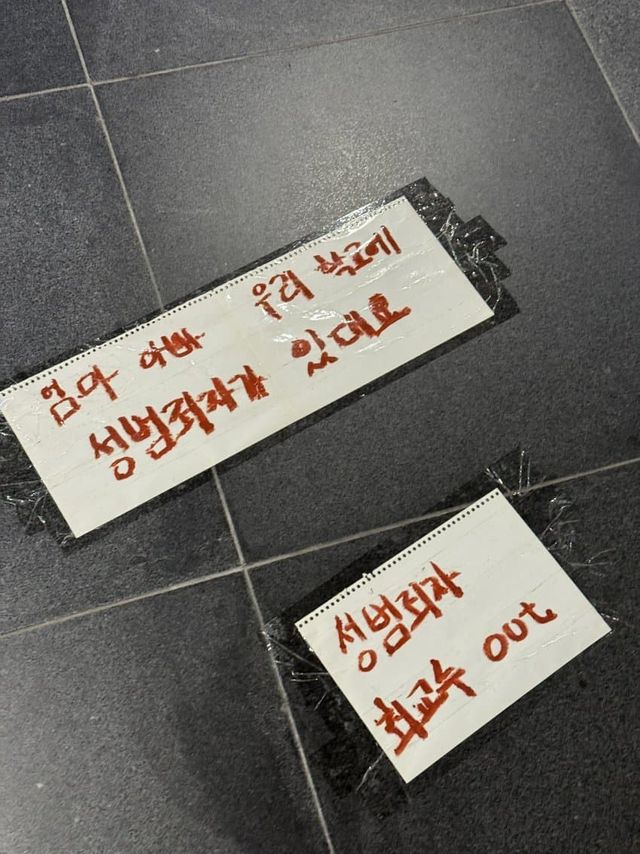 엄마 아빠 우리 학교에
성범죄자가 있대요
성범죄자
최교수 out